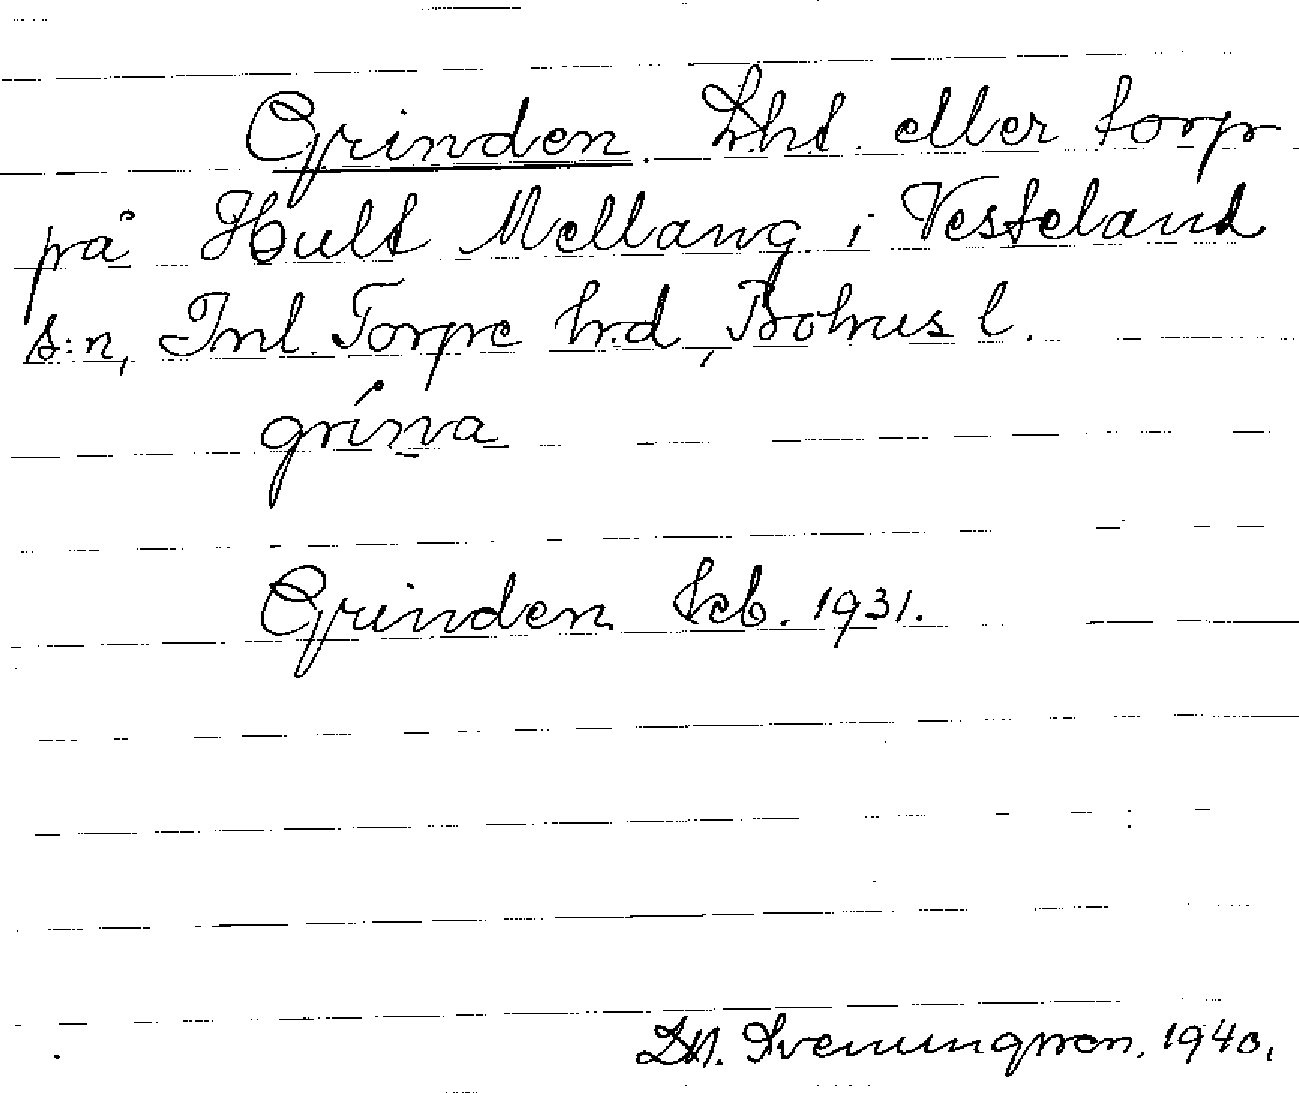 Grinden. Lht. eller torp
på Hult Mellang i Vesteland
s:n, Inl. Torpe hrd, Bohus l.
grína
Grinden Jcb. 1931.
D.H. Svenungsson. 1940.